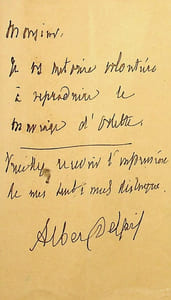 Monsieur,
Je vs autorise volontiers
à reproduire le
mariage d'Odette.
Veuillez recevoir l'expression
de mes sentiments distingués.
Albert Delpit